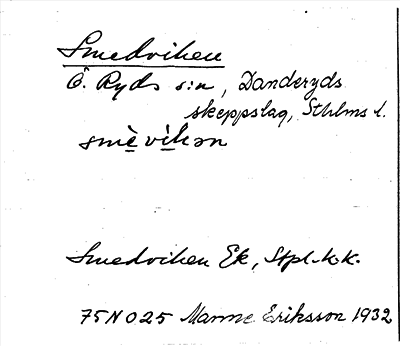 Smedviken
Ö. Ryds s:n, Danderyds
skeppslag, Sthlms l.
smèvìkən
Smedviken Ek, Stpl. k.k.
75NO25 Manne Eriksson 1932